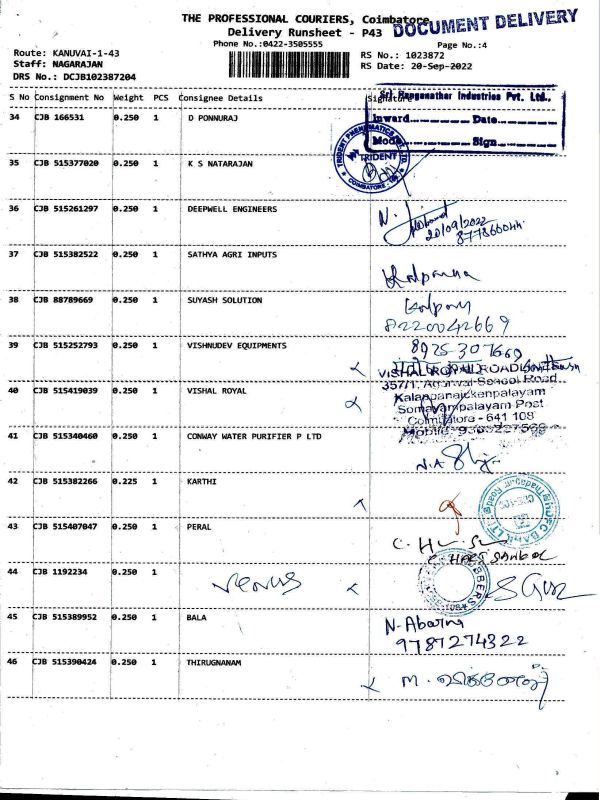 THE PROFESSIONAL COURIERS, Coimbatore
DOCUMENT DELIVERY
Delivery Runsheet - P43
Phone No.:0422-3505555
Page No.:4
Route: KANUVAI-1-43
RS No.: 1023872
Staff: NAGARAJAN
RS Date: 20-Sep-2022
DRS No.: DCJB102387204
S No Consignment No Weight PCS Consignee Details Signature
Sri Ranganathar Industries Pvt. Ltd.,
34 CJB 166531 0.250 1 D PONNURAJ
Inward Date
Mode Sign
TRIDENT PNEUMATICS PVT. LTD.
TRIDENT
COIMBATORE
35 CJB 515377020 0.250 1 K S NATARAJAN
36 CJB 515261297 0.250 1 DEEPWELL ENGINEERS
20/09/2022
37 CJB 515382522 0.250 1 SATHYA AGRI INPUTS
Kalpanna
38 CJB 88789669 0.250 1 SUYASH SOLUTION
8220042669
39 CJB 515252793 0.250 1 VISHNUDEV EQUIPMENTS
8925307669
VISHAL ROYAL ROADLINES
40 CJB 515419039 0.250 1 VISHAL ROYAL
357/1, Agarwal School Road
Kalappanaickenpalayam
Somayampalayam Post
Coimbatore - 641 108
41 CJB 515340460 0.250 1 CONWAY WATER PURIFIER P LTD
42 CJB 515382266 0.225 1 KARTHI
43 CJB 515407047 0.250 1 PERAL
44 CJB 1192234 0.250 1
Venus
45 CJB 515389952 0.250 1 BALA
N-Abarna
9787274322
46 CJB 515390424 0.250 1 THIRUGNANAM